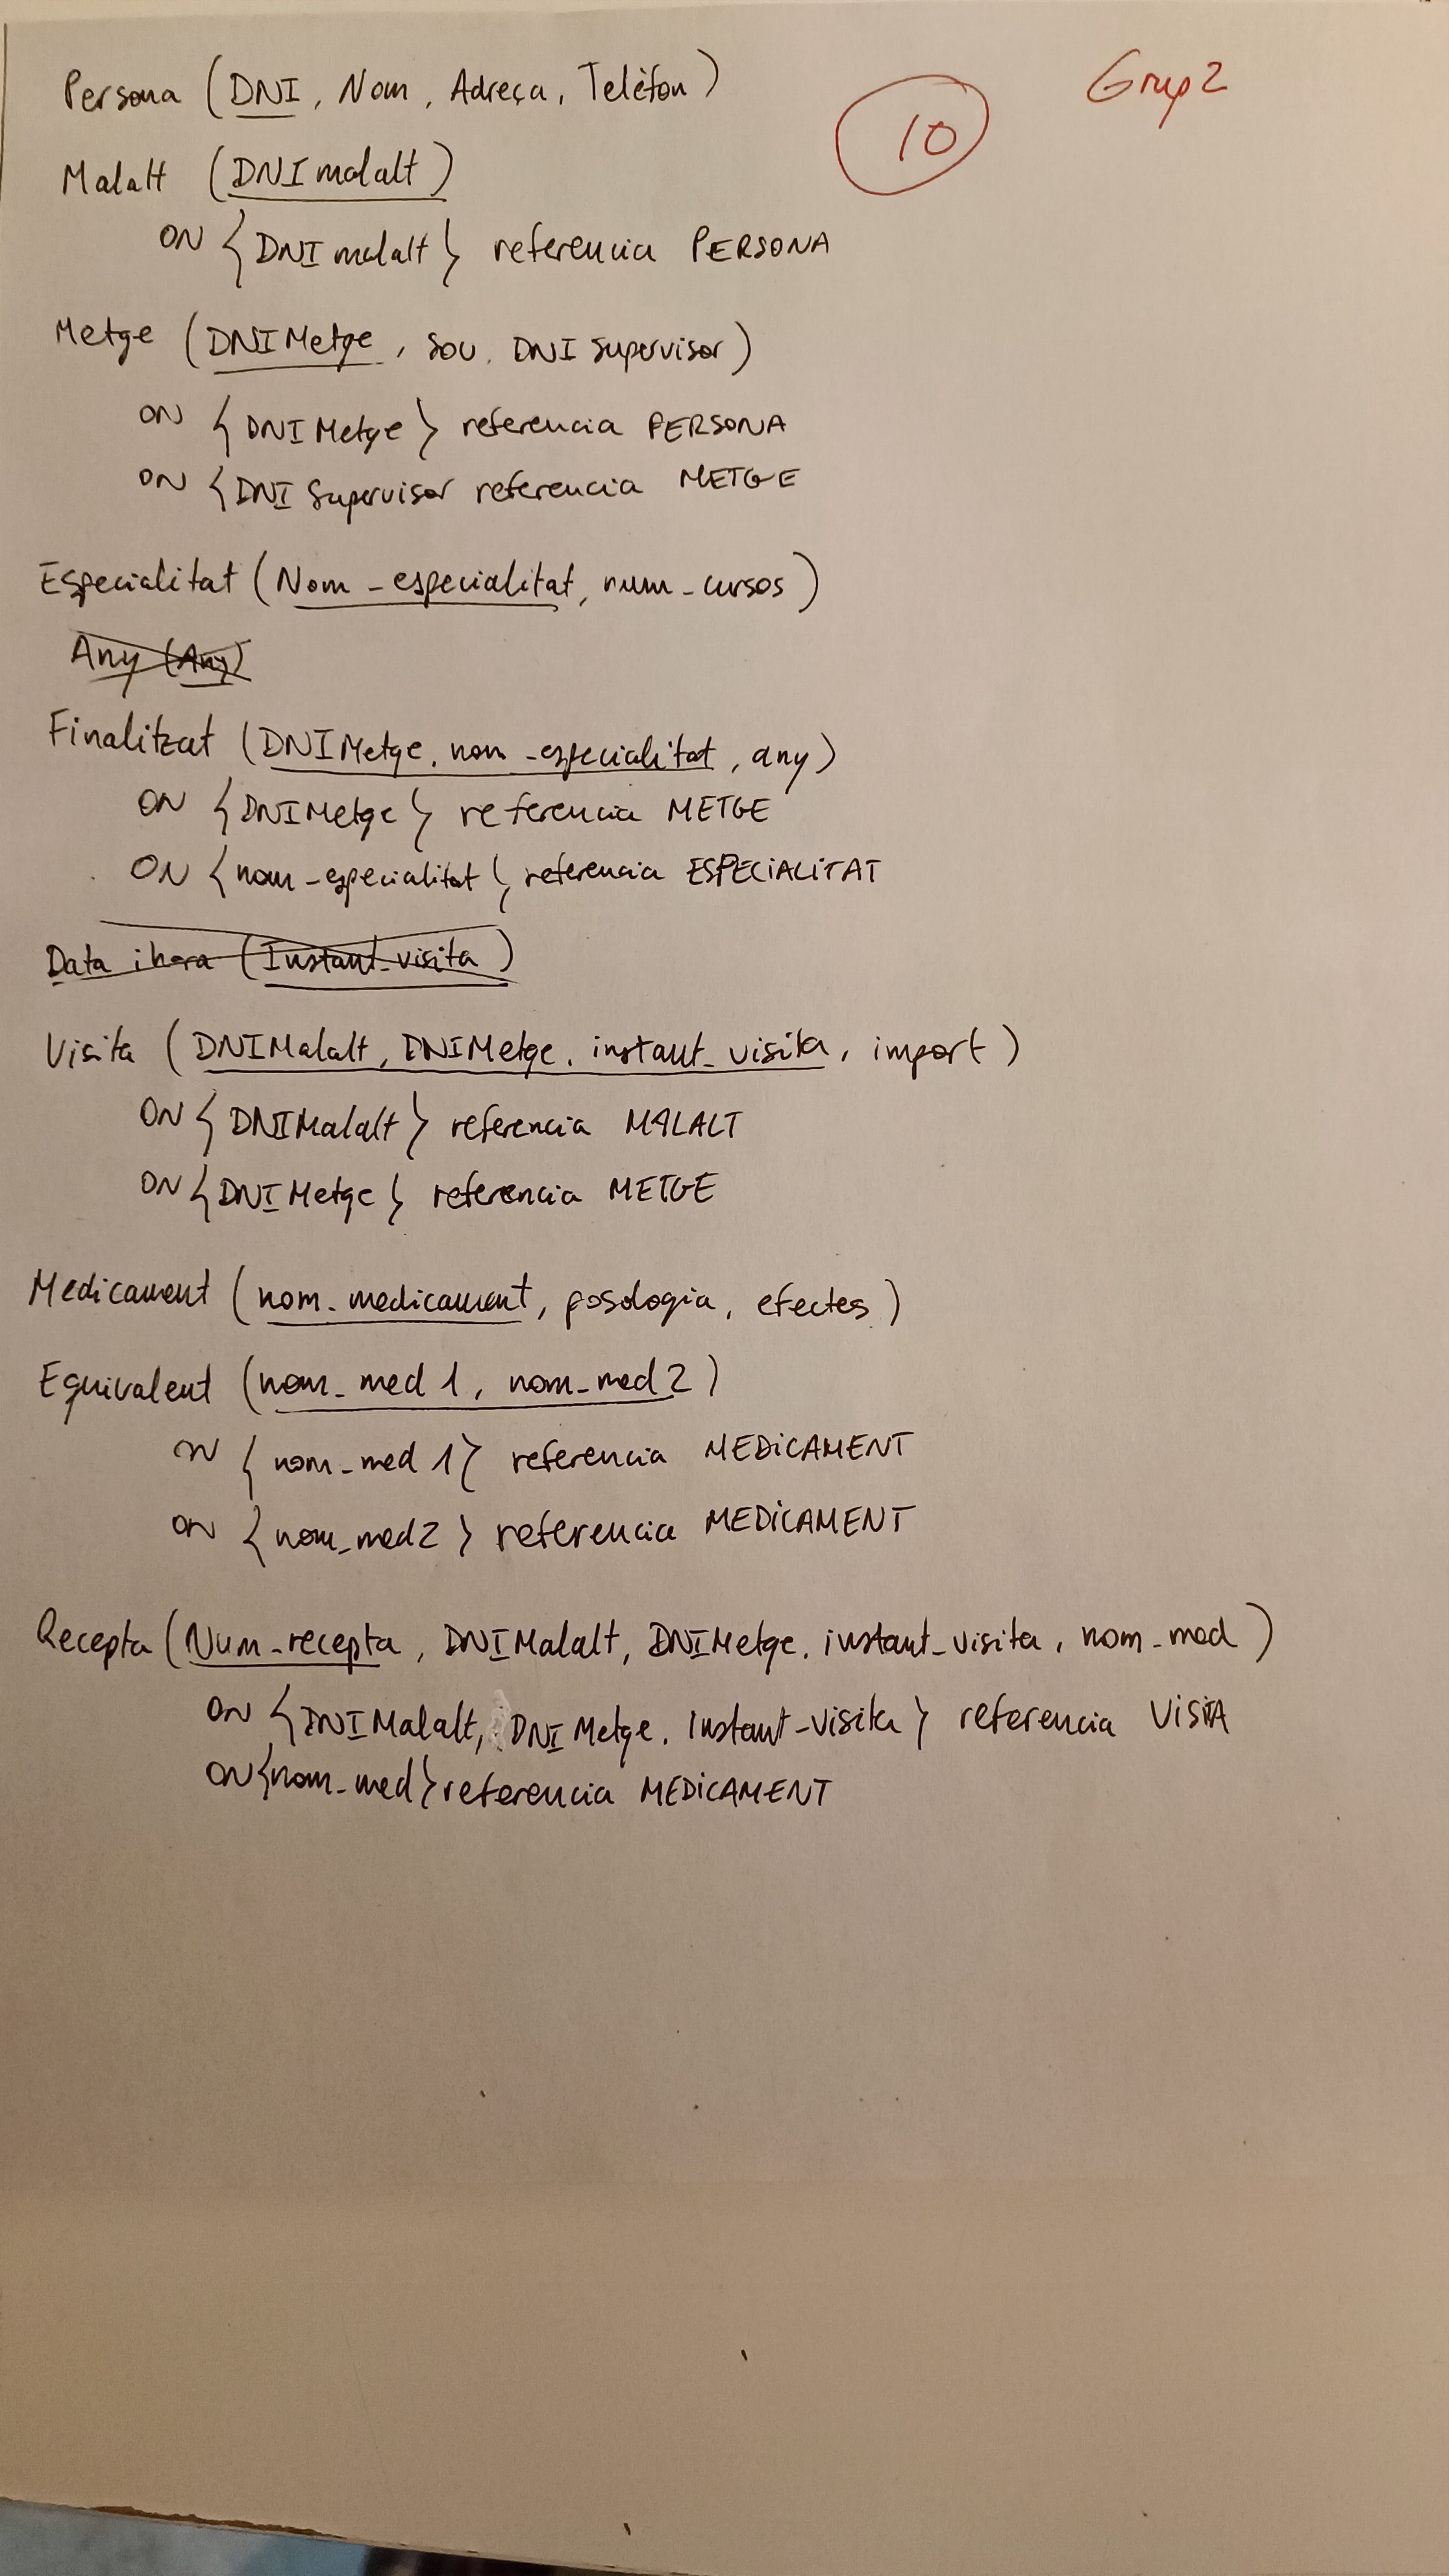 Grup 2
10
Persona (DNI, Nom, Adreça, Telèfon)
Malalt (DNImalalt)
ON {DNImalalt} referencia PERSONA
Metge (DNIMetge, sou, DNISupervisor)
ON {DNIMetge} referencia PERSONA
ON {DNISupervisor referencia METGE
Especialitat (Nom_especialitat, num_cursos)
Any (Any)
Finalitzat (DNIMetge, nom_especialitat, any)
ON {DNIMetge} referencia METGE
ON {nom_especialitat} referencia ESPECIALITAT
Data i hora (Instant_visita)
Visita (DNIMalalt, DNIMetge, instant_visita, import)
ON {DNIMalalt} referencia MALALT
ON {DNIMetge} referencia METGE
Medicament (nom_medicament, posologia, efectes)
Equivalent (nom_med1, nom_med2)
ON {nom_med1} referencia MEDICAMENT
ON {nom_med2} referencia MEDICAMENT
Recepta (Num_recepta, DNIMalalt, DNIMetge, instant_visita, nom_med)
ON {DNIMalalt, DNIMetge, Instant_visita} referencia VISITA
ON {nom_med} referencia MEDICAMENT